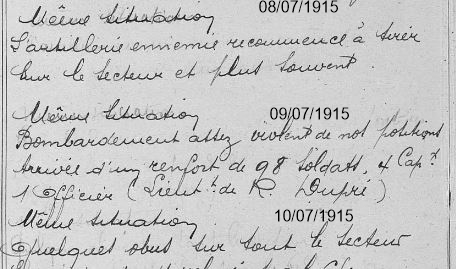 Même situation 08/07/1915
L'artillerie ennemie recommence à tirer
sur le secteur et plus souvent.
Même situation 09/07/1915
Bombardement assez violent de nos positions
Arrivée d'un renfort de 98 soldats, 4 Cap.
1 Officier (Lieut. de R. Dupré)
Même situation 10/07/1915
Quelques obus sur tout le secteur